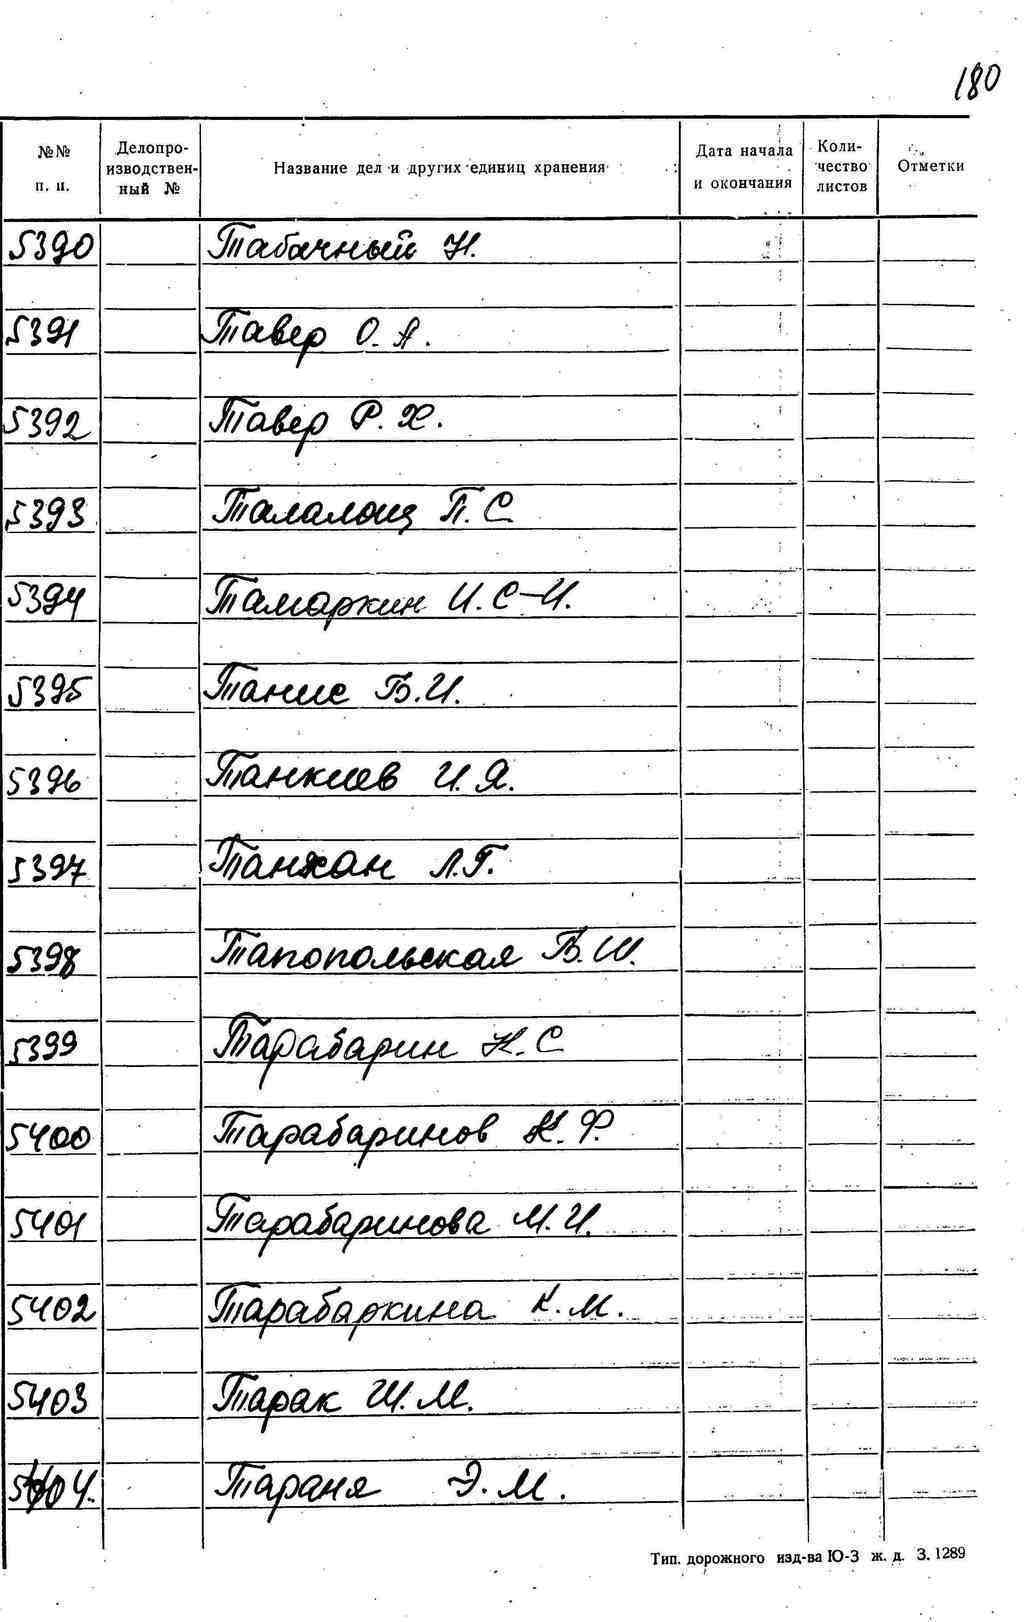 180
№№ п. п. Делопроизводственный № Название дел и других единиц хранения Дата начала и окончания Количество листов Отметки
5390 Табачный Н.
5391 Тавер О. А.
5392 Тавер Р. Х.
5393 Талалощ П. С
5394 Тамаркин И. С-И.
5395 Танис Б. И.
5396 Танкиев И. Я.
5397 Танхан Л. Г.
5398 Тапопольская Б. Ш.
5399 Тарабарин Н. С
5400 Тарабаринов К. Ф.
5401 Тарабаринова М. И.
5402 Тарабаркина К. М.
5403 Тарак Ш. М.
5404. Тараня Э. М.
Тип. дорожного изд-ва Ю-З ж. д. З. 1289